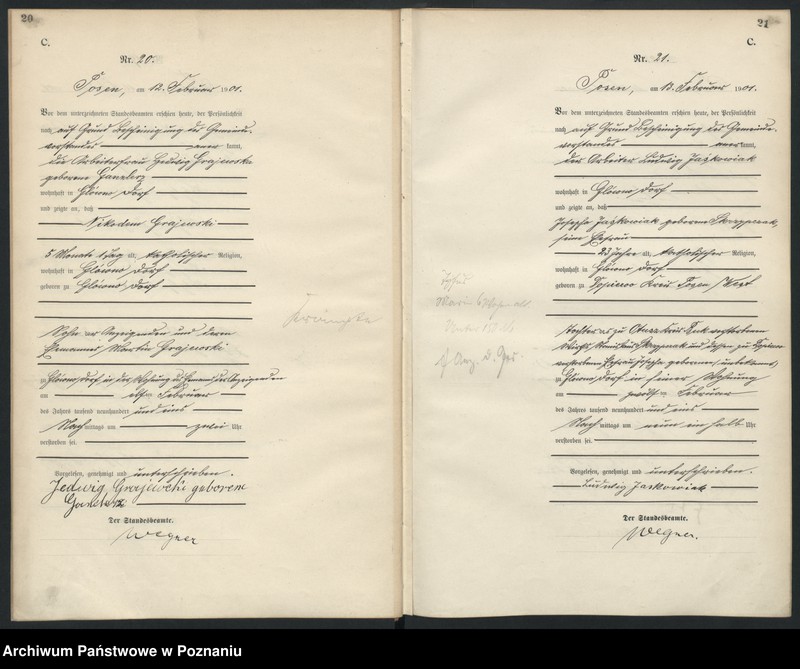 20
C.
Nr. 20.
Posen, am 12. Februar 1901.
Vor dem unterzeichneten Standesbeamten erschien heute, der Persönlichkeit
nach auf Grund Bescheinigung des Gemeinde-
vorstandes anerkannt,
die Arbeiterfrau Hedwig Grajewska
geborene
wohnhaft in Glowno Dorf
und zeigte an, daß
Nikodem Grajewski
5 Monate 1 Tag alt, katholischer Religion,
wohnhaft in Glowno Dorf
geboren zu Glowno Dorf
Sohn der Anzeigenden und deren
Ehemannes Martin Grajewski
zu Glowno Dorf in der Wohnung des Ehemannes der Anzeigenden
am elften Februar
des Jahres tausend neunhundert und eins
Nachmittags um zwei Uhr
verstorben sei.
Vorgelesen, genehmigt und unterschrieben.
Jedwig Grajewski geborene
Der Standesbeamte.
Wegner
21
C.
Nr. 21.
Posen, am 13. Februar 1901.
Vor dem unterzeichneten Standesbeamten erschien heute, der Persönlichkeit
nach auf Grund Bescheinigung des Gemeinde-
vorstandes anerkannt,
der Arbeiter Ludwig Jaskowiak
wohnhaft in Glowno Dorf
und zeigte an, daß
Josepha Jaskowiak geborene
seine Ehefrau
23 Jahre alt, katholischer Religion,
wohnhaft in Glowno Dorf
geboren zu Kreis Posen West
Tochter des zu verstorbenen
und dessen zu
verstorbenen Ehefrau Josepha geborenen, unbekannt,
zu Glowno Dorf in seiner Wohnung
am zwölften Februar
des Jahres tausend neunhundert und eins
Nachmittags um neun ein halb Uhr
verstorben sei.
Vorgelesen, genehmigt und unterschrieben.
Ludwig Jaskowiak
Der Standesbeamte.
Wegner.
Archiwum Państwowe w Poznaniu